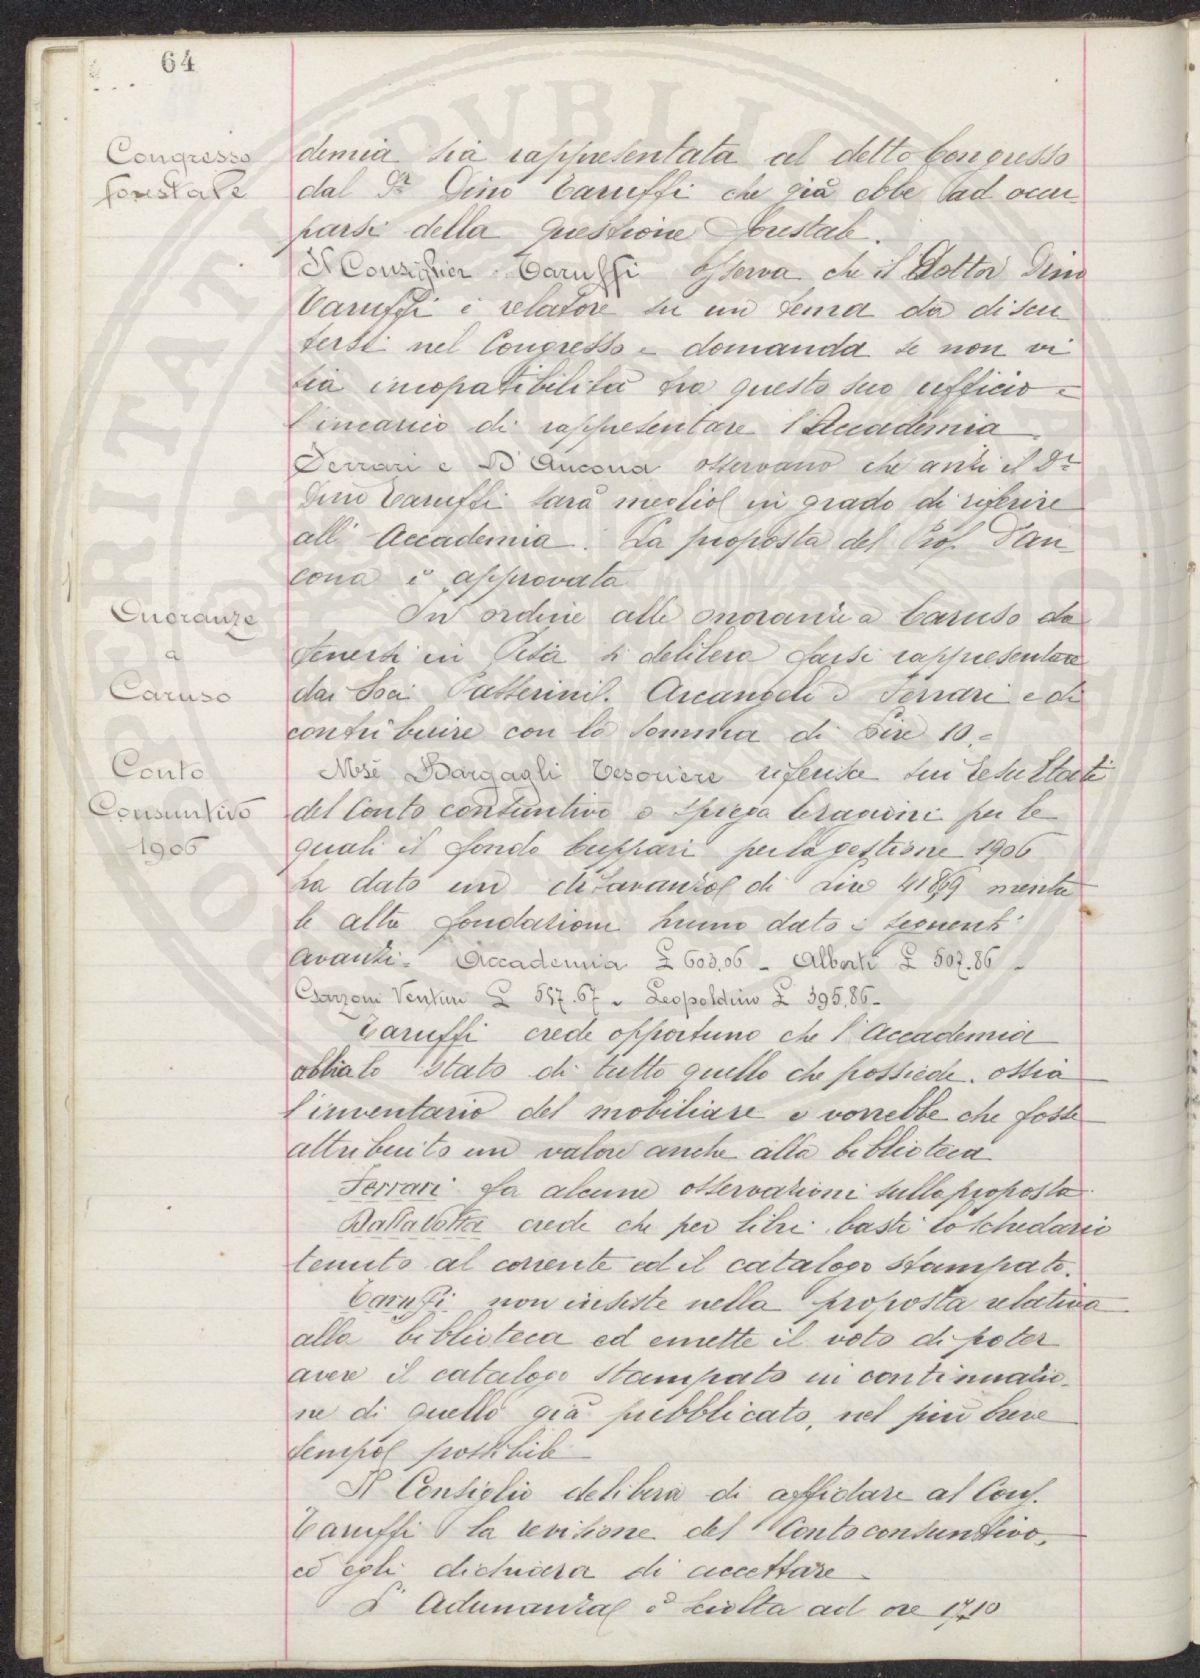 64
Congresso
forestale
demia sia rappresentata al detto Congresso
dal Dr Dino Taruffi che già ebbe ad occu
parsi della questione forestale.
Il Consiglier Taruffi osserva che il Dottor Dino
Taruffi è relatore su un tema da discu
tersi nel Congresso e domanda se non vi
sia incopatibilità tra questo suo ufficio e
l'incarico di rappresentare l'Accademia.
Ferrari e D'Ancona osservano che anzi il Dr
Dino Taruffi sarà meglio in grado di riferire
all'Accademia. La proposta del Prof. D'An
cona è approvata
Onoranze
a
Caruso
In ordine alle onoranze a Caruso da
tenersi in Pisa si delibera farsi rappresentare
dai Soci Passerini, Arcangeli e Ferrari e di
contribuire con la somma di Lire 10.=
Conto
Consuntivo
1906
Mse Bargagli Tesoriere riferisce sui resultati
del Conto consuntivo e spiega le ragioni per le
quali il fondo Cuppari per la gestione 1906
ha dato un disavanzo di Lire mentre
le altre fondazioni hanno dato i seguenti
avanzi. Accademia £ 603,06 - Alberti £ 507.86 -
Garzoni Venturi £ 557.67 - Leopoldino £ 395,86 -
Taruffi crede opportuno che l'Accademia
abbia lo stato di tutto quello che possiede, ossia
l'inventario del mobiliare e vorrebbe che fosse
attribuito un valore anche alla biblioteca
Ferrari fa alcune osservazioni sulla proposta.
crede che per libri basti lo schedario
tenuto al corrente ed il catalogo stampato.
Taruffi non insiste nella proposta relativa
alla biblioteca ed emette il voto di poter
avere il catalogo stampato in continuazio-
ne di quello già pubblicato, nel più breve
tempo possibile
Il Consiglio delibera di affidare al Cons.
Taruffi la revisione del Conto consuntivo,
ed egli dichiara di accettare.
L'Adunanza è sciolta ad ore 17,10